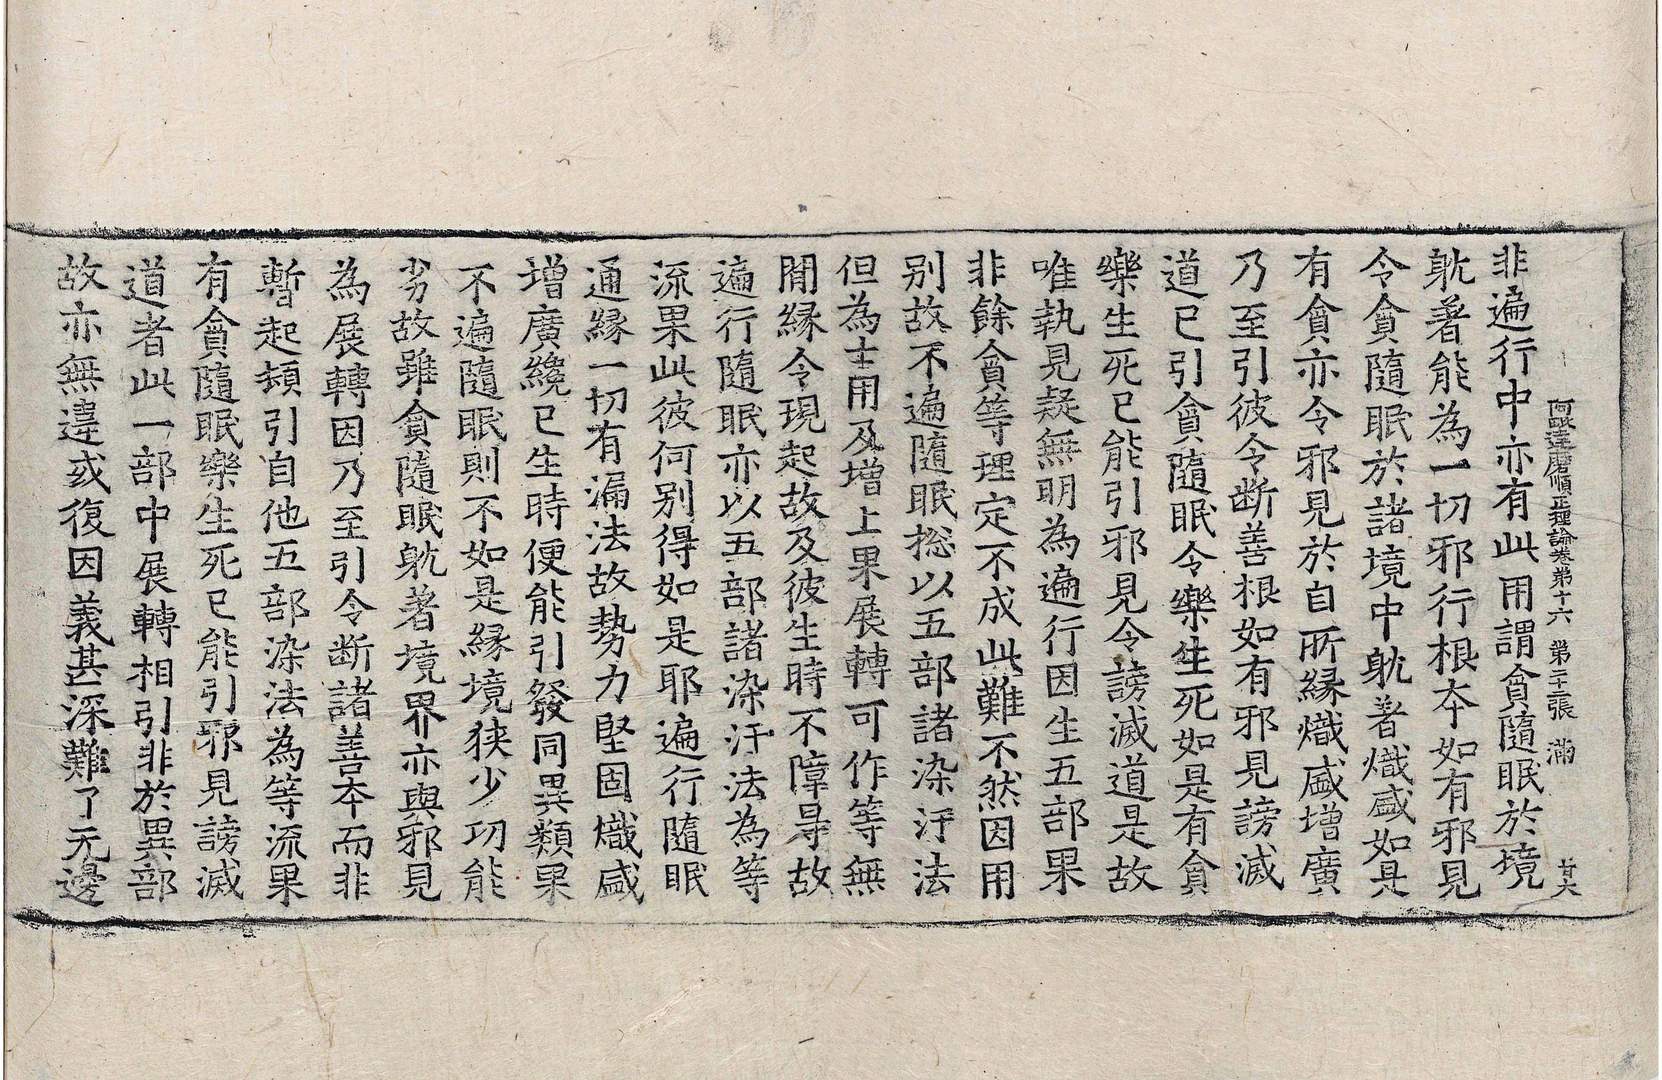 阿毗達磨順正理論卷第十六 第二十張 滿 廿六
非遍行中亦有此用謂貪隨眠於境
躭著能為一切邪行根本如有邪見
令貪隨眠於諸境中躭著熾盛如是
有貪亦令邪見於自所緣熾盛增廣
乃至引彼令斷善根如有邪見謗滅
道已引貪隨眠令樂生死如是有貪
樂生死已能引邪見令謗滅道是故
唯執見疑無明為遍行因生五部果
非餘貪等理定不成此難不然因用
別故不遍隨眠捴以五部諸染汙法
但為士用及增上果展轉可作等無
閒緣令現起故及彼生時不障㝵故
遍行隨眠亦以五部諸染汙法為等
流果此彼何別得如是耶遍行隨眠
通緣一切有漏法故勢力堅固熾盛
增廣纔已生時便能引發同異類果
不遍隨眠則不如是緣境狹少功能
劣故雖貪隨眠躭著境界亦與邪見
為展轉因乃至引令斷諸善夲而非
暫起頓引自他五部染法為等流果
有貪隨眠樂生死已能引邪見謗滅
道者此一部中展轉相引非於異部
故亦無違或復因義甚深難了无邊